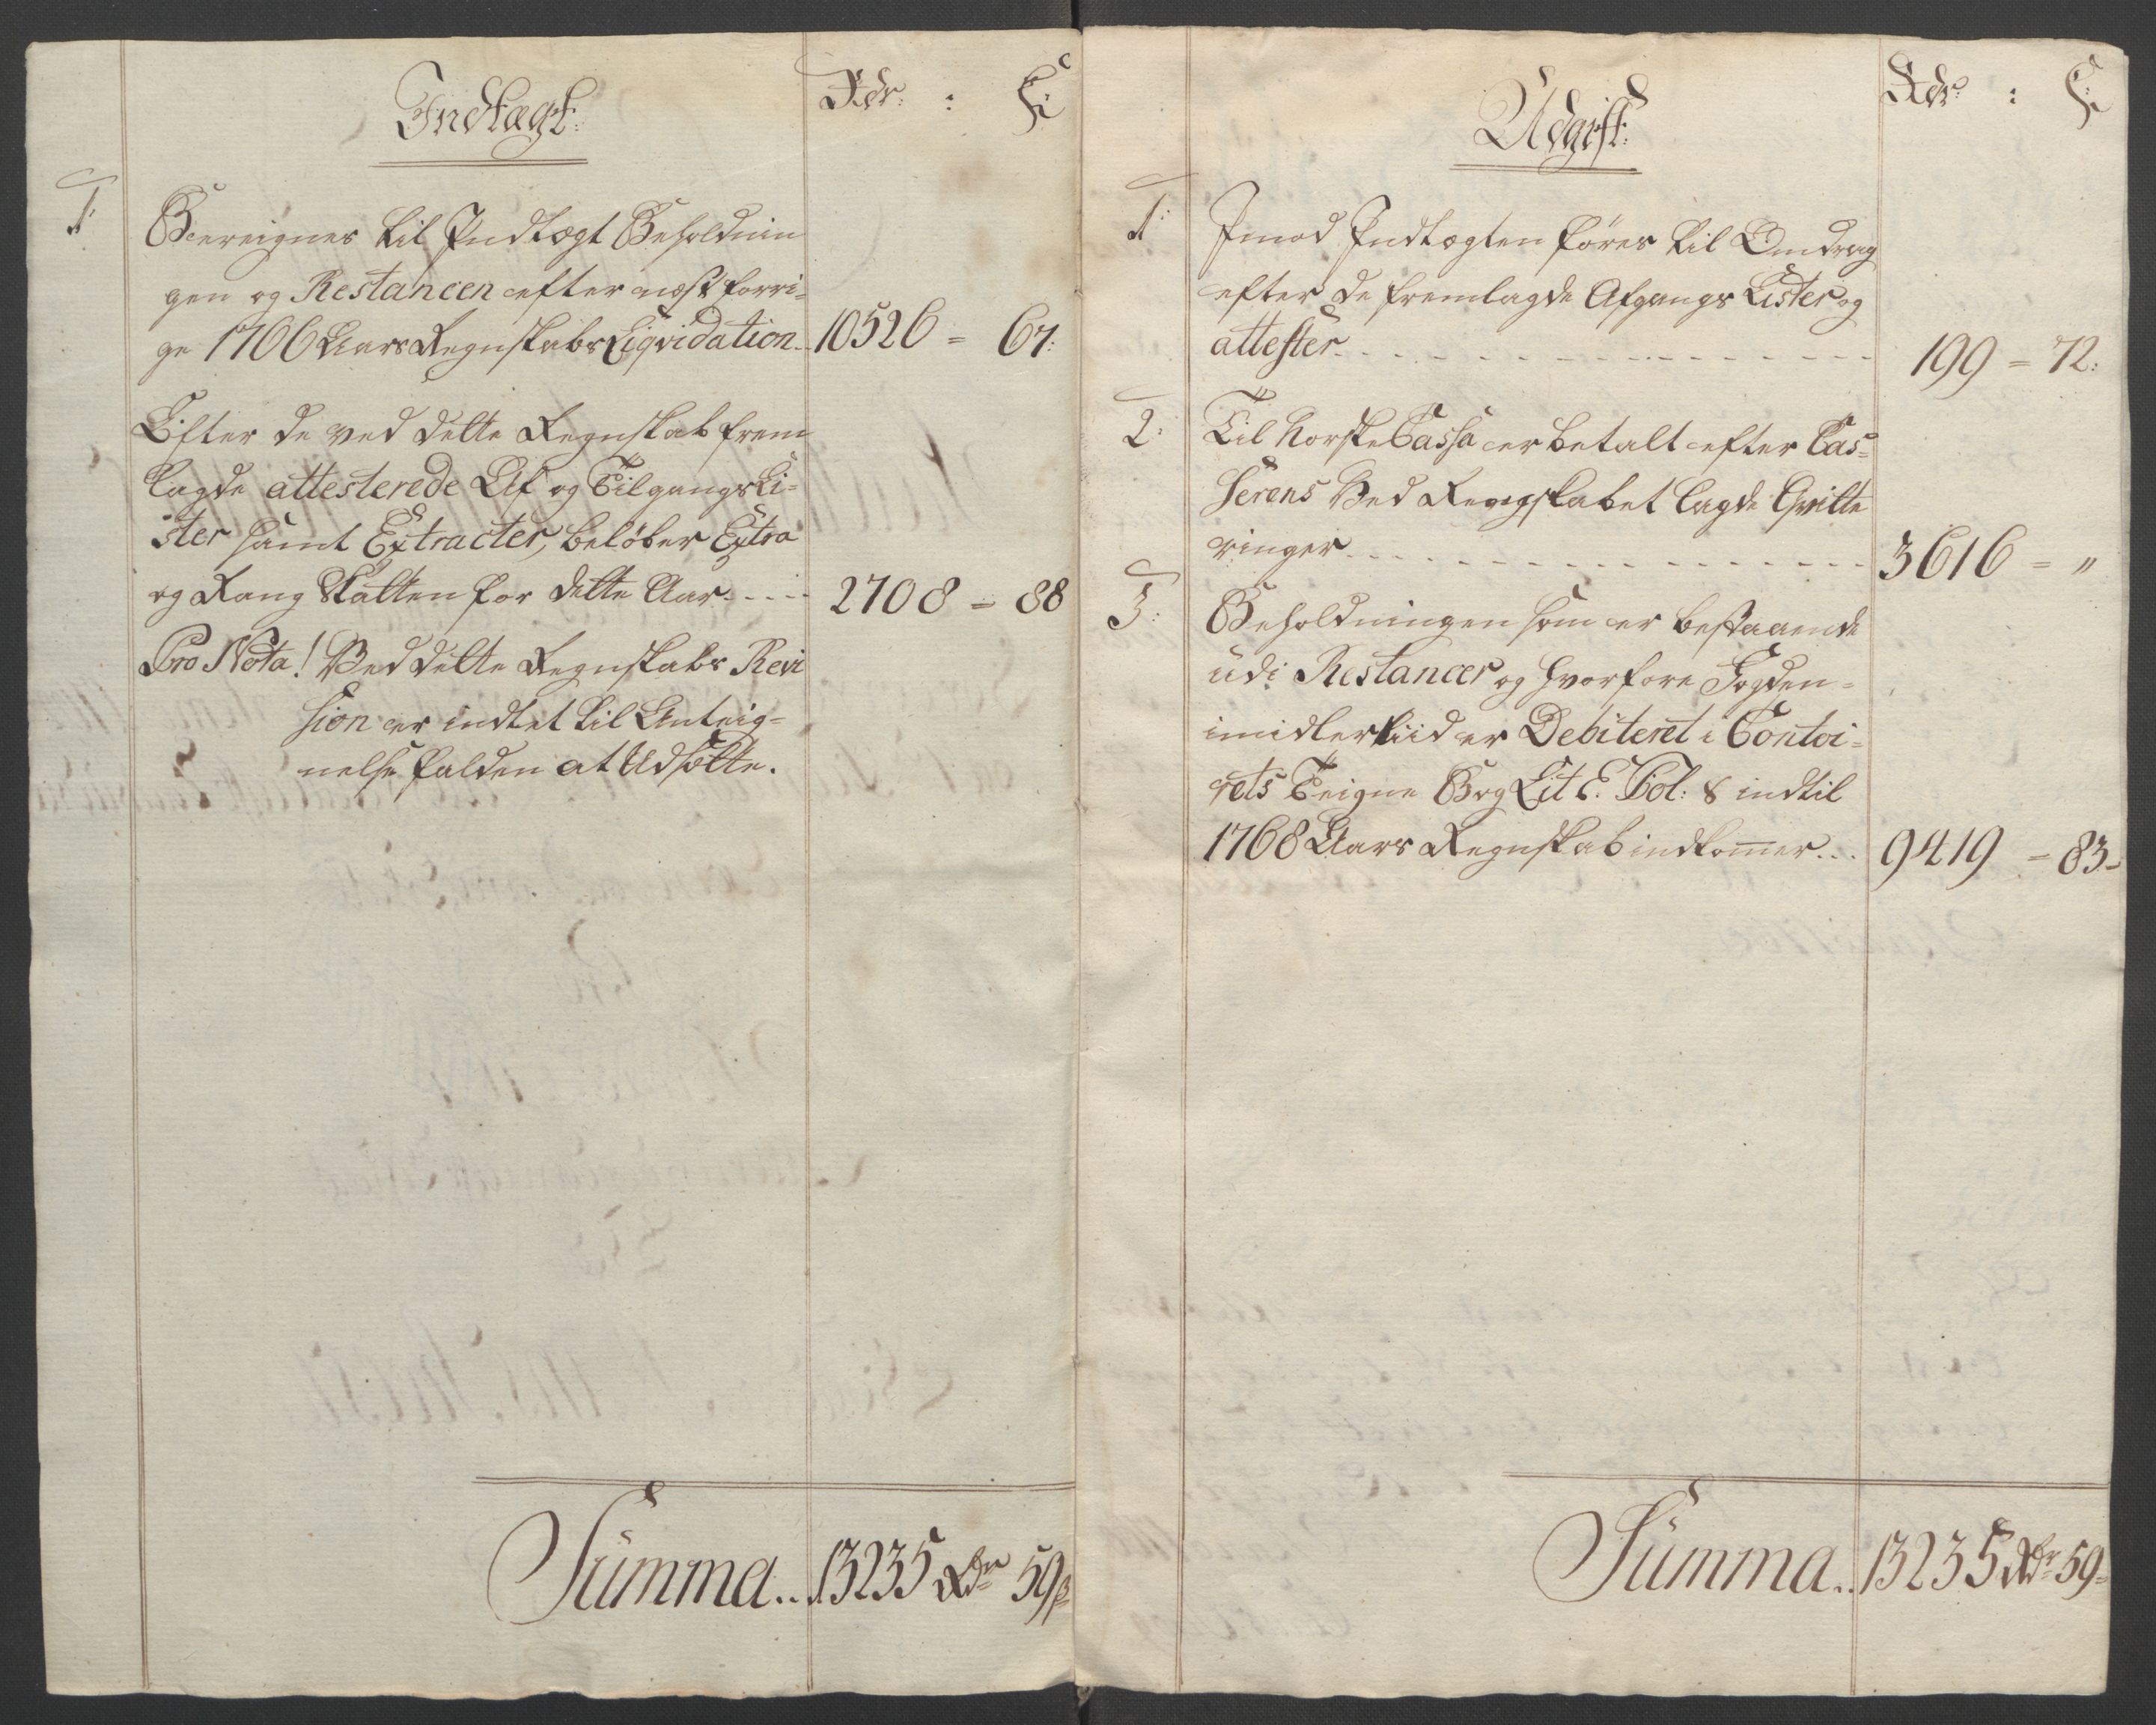 Indtægt: Rdr: : ß:
1: Bereignes til Indtægt Beholdnin
gen og Restancen efter næst forri-
ge 1766 Aars Regnskabs Liqvidation.. 10526 = 67:
Efter de ved dette Regnskab frem
lagde attesterede Af og Tilgangs Li-
ster samt Extracter, beløber Extra
og Rang Skatten for dette Aar.... 2708 = 88
Pro Nota! Ved dette Regnskabs Revi
sion er indtet til Anteig-
nelse falden at Udsætte.
Summa.. 13235 Rdr 59 ß
Udgift: Rdr: : ß:
1: Imod Indtægten føres til Omdrag
efter de fremlagde Afgangs Lister og
attester . . . 199 = 72:
2: Til Norske Cassa er betalt efter Cas-
serens Ved Regnskabet lagde Qvitte
ringer . . . 3616 = "
3: Beholdningen som er bestaaende
udi Restancer og hvorfore Fogden-
imidlertiid er Debiteret i Contoi-
rets Teigne Bog Lit E. Fol: 8 indtil
1768 Aars Regnskab indkommer... 9419 = 83-
Summa.. 13235 Rdr 59-